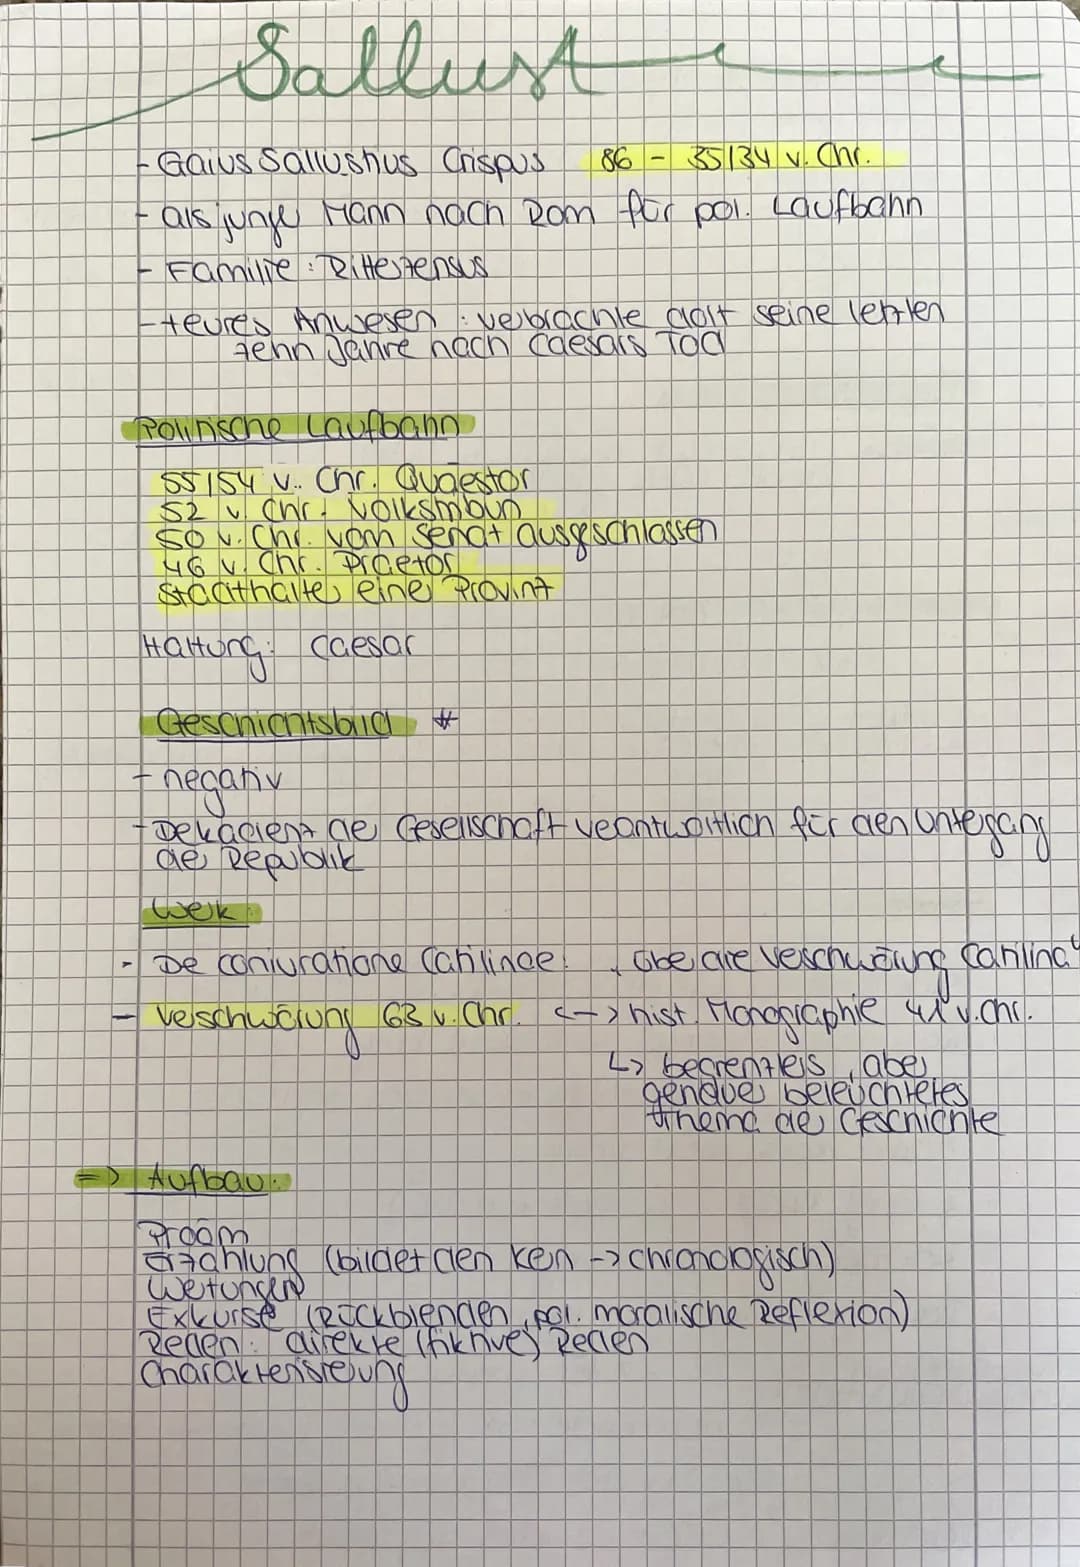 Sallust
- Gaius Sallustius Crispus 86 - 35/34 v. Chr.
- als junger Mann nach Rom für pol. Laufbahn
- Familie: Ritterzensus
- teures Anwesen: verbrachte dort seine letzten
zehn Jahre nach Caesars Tod
Politische Laufbahn
55/54 v. Chr. Quaestor
52 v. Chr. Volkstribun
50 v. Chr. vom Senat ausgeschlossen
46 v. Chr. Praetor
Staathalter einer Provinz
Haltung: Caesar
Geschichtsbild *
- negativ
- Dekadenz der Gesellschaft verantwortlich für den Untergang
der Republik
Werk:
- De coniuratione Catilinae: „über die Verschwörung Catilina“
- Verschwörung 63 v. Chr. <-> hist. Monographie 41 v. Chr.
↳ begrenztes, aber
genauer beleuchtetes
Thema der Geschichte
=> Aufbau:
Proöm
Erzählung (bildet den Kern -> chronologisch)
Wertungen
Exkurse (Rückblenden, pol. moralische Reflexion)
Reden: direkte (fiktive) Reden
Charakterisierung